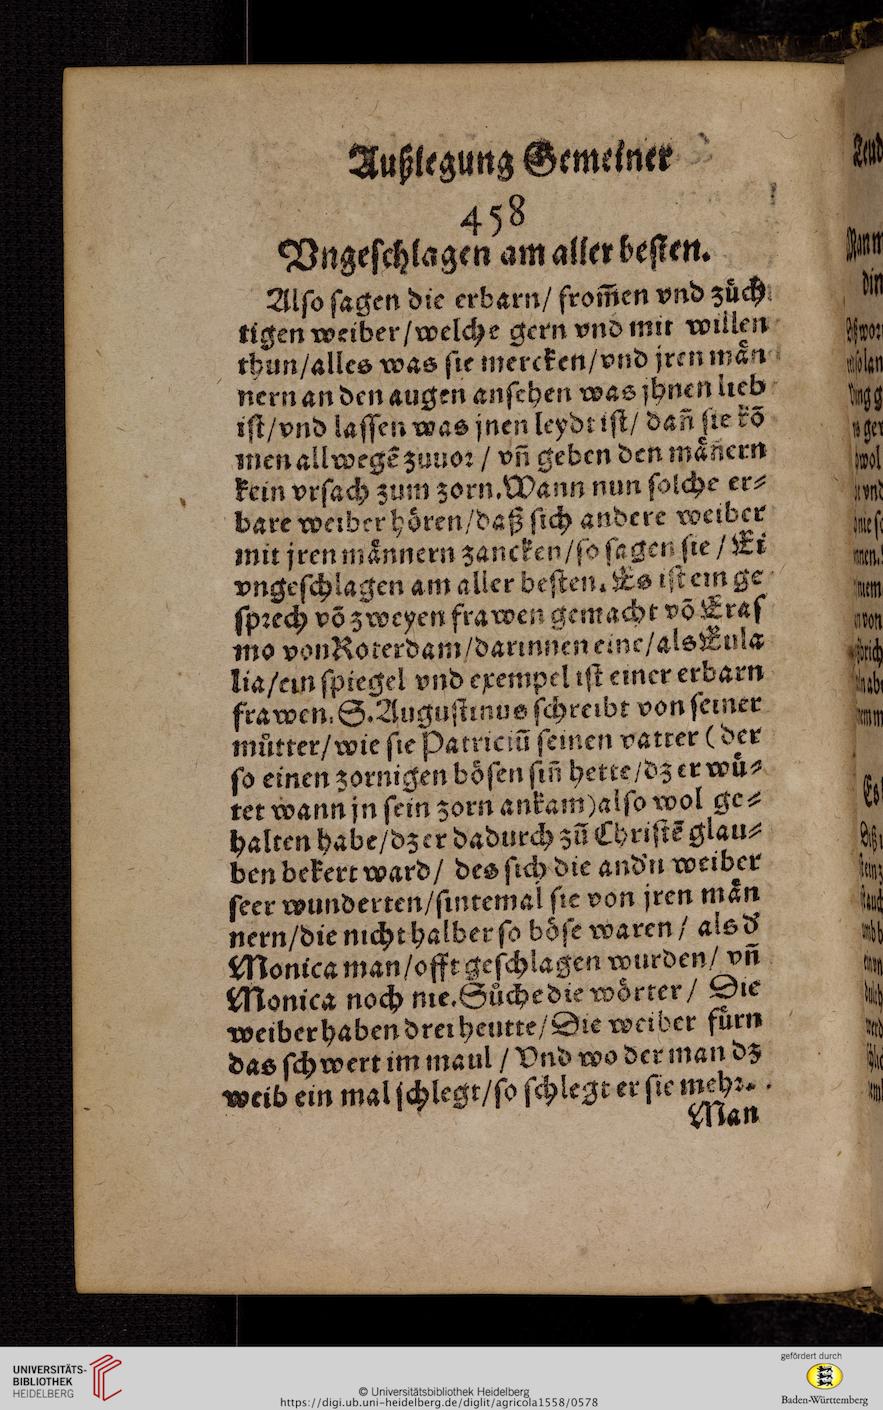 Außlegung Gemeiner
458
Vngeschlagen am aller besten.
Also sagen die erbarn/ from̃en vnd zuͤch
tigen weiber/welche gern vnd mit willen
thun/alles was sie mercken/vnd jren maͤn
nern an den augen ansehen was jhnen lieb
ist/vnd lassen was jnen leydt ist/ dañ sie kõ
men allwegẽ zuuor / vñ geben den maͤñern
kein vrsach zum zorn. Wann nun solche er⸗
bare weiber hoͤren/daß sich andere weiber
mit jren maͤnnern zancken/so sagen sie / Ei
vngeschlagen am aller besten. Es ist ein ge
sprech võ zweyen frawen gemacht võ Eras
mo von Roterdam/darinnen eine/als Eula
lia/ein spiegel vnd exempel ist einer erbarn
frawen. S. Augustinus schreibt von seiner
muͤtter/wie sie Patriciũ seinen vatter (der
so einen zornigen boͤsen siñ hette/dz er wuͤ⸗
tet wann jn sein zorn ankam) also wol ge⸗
halten habe/dz er dadurch zũ Christẽ glau⸗
ben bekert ward/ des sich die and'n weiber
seer wunderten/sintemal sie von jren maͤn
nern/die nicht halber so boͤse waren/ als d'
Monica man/offt geschlagen wurden/ vñ
Monica noch nie. Suͤche die woͤrter/ Die
weiber haben drei heutte/Die weiber fuͤrn
das schwert im maul / Vnd wo der man dz
weib ein mal schlegt/so schlegt er sie mehr.
Man
UNIVERSITÄTS-
BIBLIOTHEK
HEIDELBERG
© Universitätsbibliothek Heidelberg
https://digi.ub.uni-heidelberg.de/diglit/agricola1558/0578
gefördert durch
Baden-Württemberg